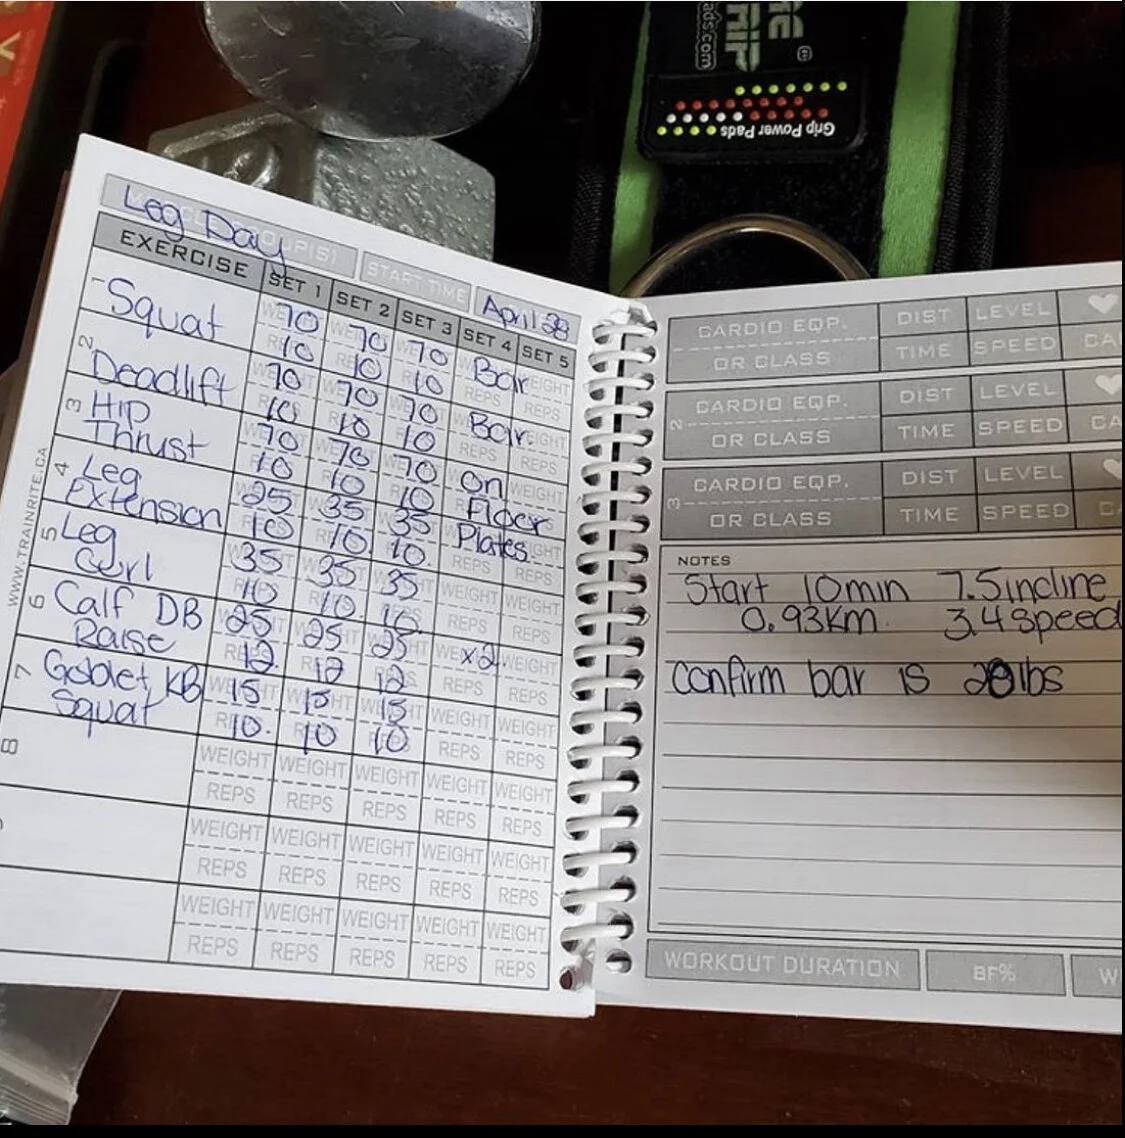 ads.com
Grip Power Pads
Leg Day
START TIME
April 28
EXERCISE SET 1 SET 2 SET 3 SET 4 SET 5
Squat 70 70 70 Bar WEIGHT
10 10 10 REPS REPS
2 Deadlift 70 70 70 Bar WEIGHT
10 10 10 REPS REPS
3 Hip 70 70 70 On WEIGHT
Thrust 10 10 10 Floor REPS
4 Leg 25 35 35 Plates
Extension 10 10 10 REPS REPS
5 Leg 35 35 35 WEIGHT WEIGHT
Curl 10 10 10 REPS REPS
6 Calf DB 25 25 25 x2 WEIGHT
Raise 12 12 12 REPS REPS
7 Goblet KB 15 15 15 WEIGHT WEIGHT
Squat 10 10 10 REPS REPS
8 WEIGHT WEIGHT WEIGHT WEIGHT WEIGHT
REPS REPS REPS REPS REPS
WEIGHT WEIGHT WEIGHT WEIGHT WEIGHT
REPS REPS REPS REPS REPS
WEIGHT WEIGHT WEIGHT WEIGHT WEIGHT
REPS REPS REPS REPS REPS
WWW.TRAINRITE.CA
CARDIO EQP. DIST LEVEL
OR CLASS TIME SPEED CA
2 CARDIO EQP. DIST LEVEL
OR CLASS TIME SPEED CA
3 CARDIO EQP. DIST LEVEL
OR CLASS TIME SPEED
NOTES
Start 10min 7.5incline
0.93Km 3.4speed
Confirm bar is 20lbs
WORKOUT DURATION BF% W